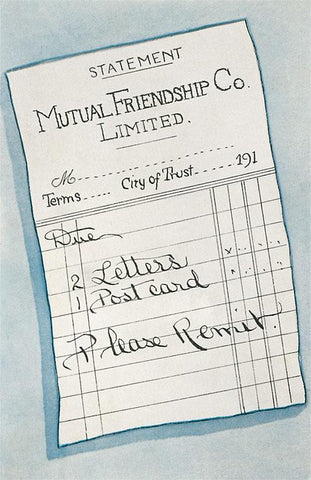 STATEMENT
MUTUAL FRIENDSHIP CO.
LIMITED.
M
Terms..... City of Trust...... 191
Due
2 Letters
1 Post card
Please Remit.